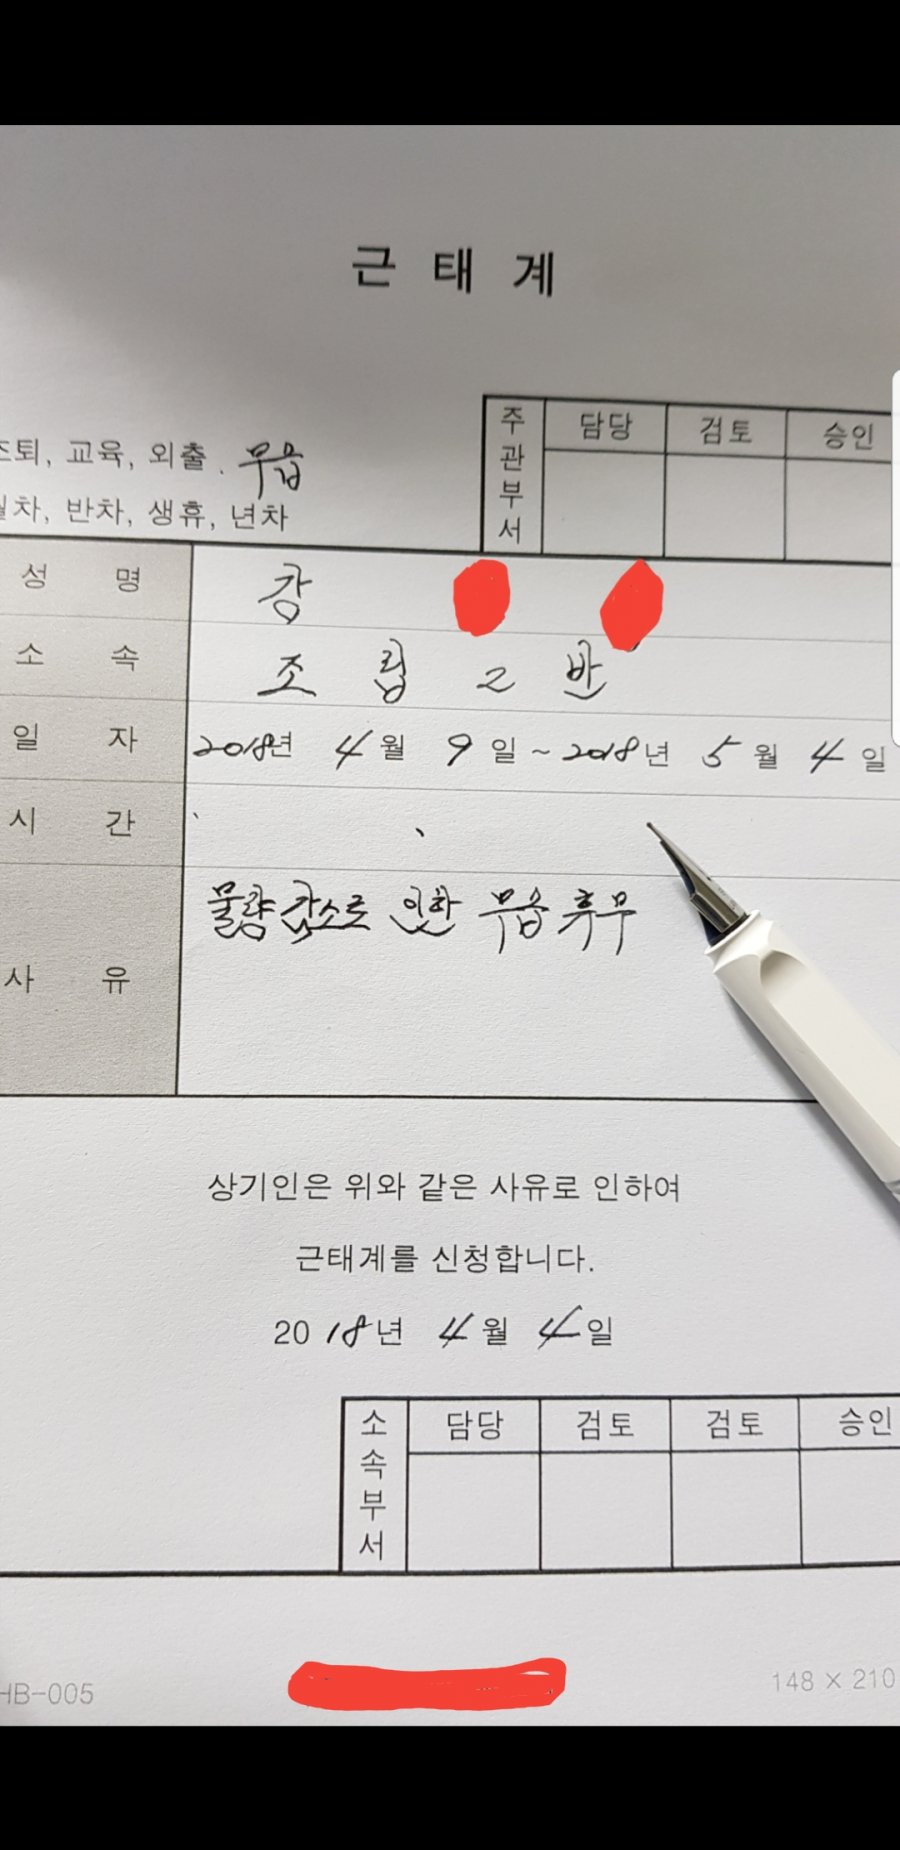 근 태 계
주관부서 담당 검토 승인
조퇴, 교육, 외출. 무급
월차, 반차, 생휴, 년차
성 명 강
소 속 조 립 2 반
일 자 2018년 4월 9일 ~ 2018년 5월 4일
시 간
사 유 물량감소로 인한 무급휴무
상기인은 위와 같은 사유로 인하여
근태계를 신청합니다.
2018년 4월 4일
소속부서 담당 검토 검토 승인
HB-005
148 × 210